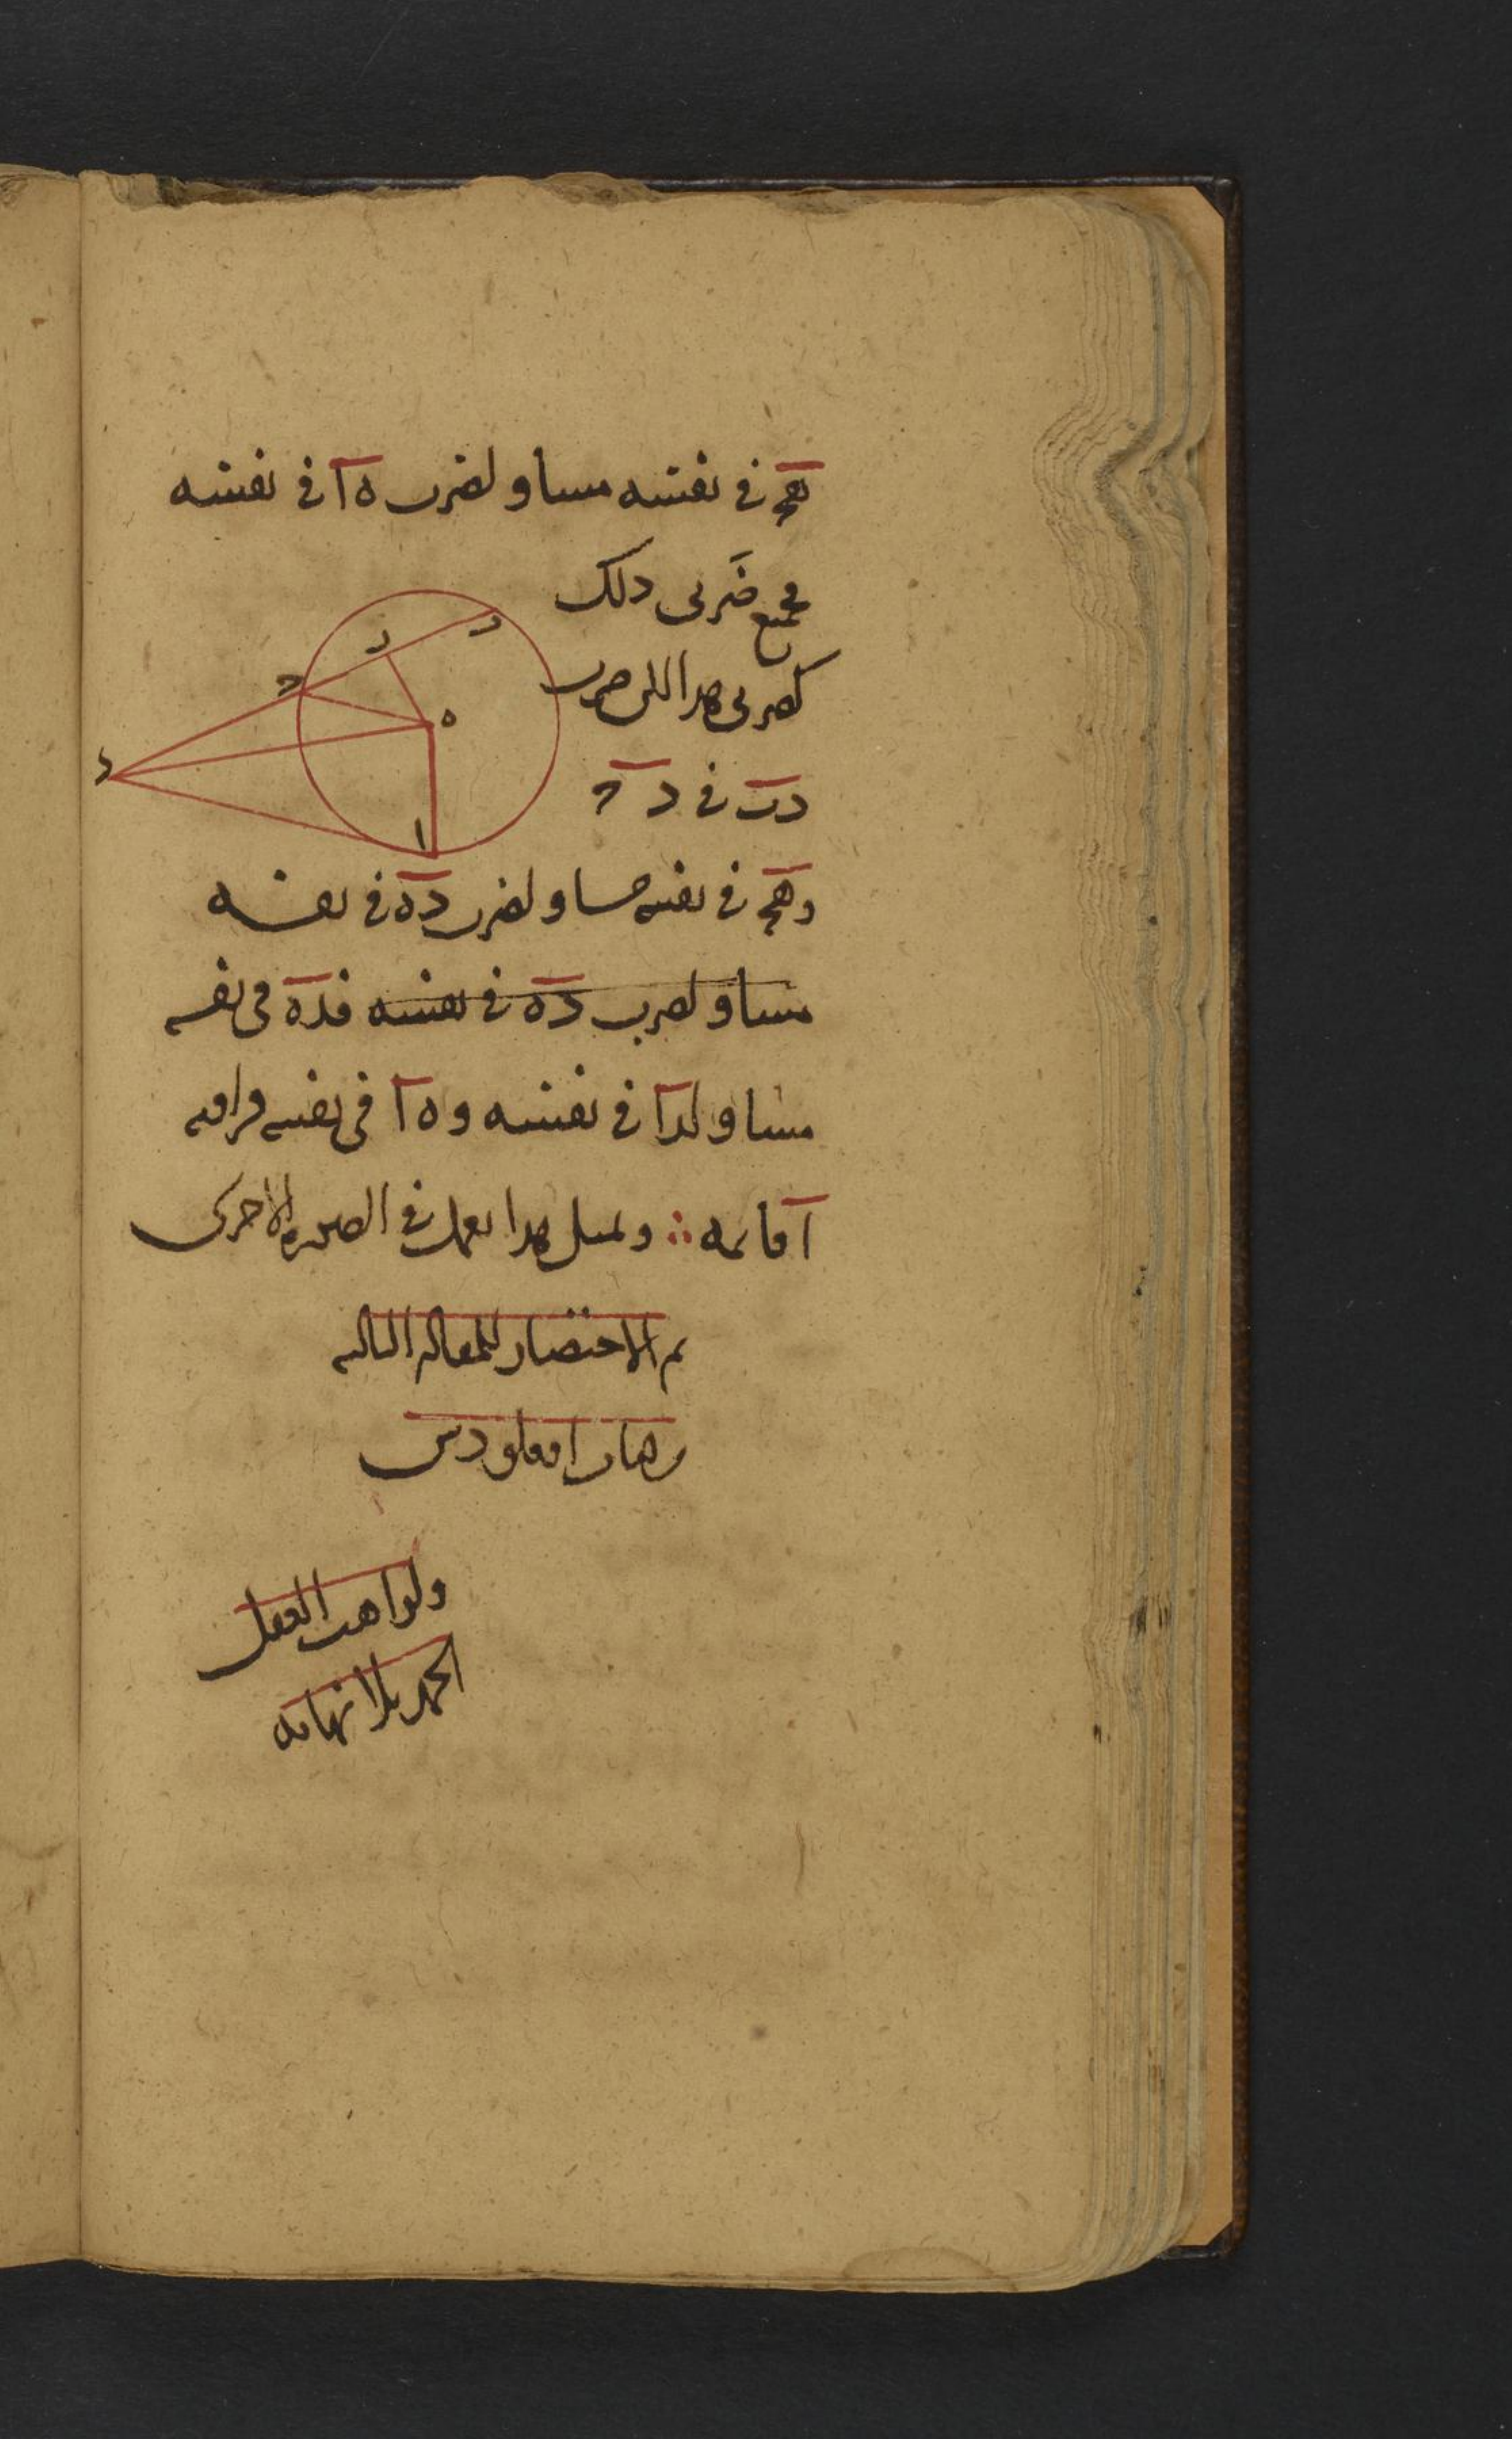 هج في نفسه مساو لضرب ه ا في نفسه
فجميع ضربى ذلك
كضربى هذا اللى ضرب
د ب في د ج
و هج في نفسه مساو لضرب د ه في نفسه
مساو لضرب د ه في نفسه فد ه في نفسه
مساو لدا في نفسه و ه ا في نفسه فزاويه
ا قائمه ∴ ولمثل هذا نعمل في الصوره الاخرى
تم الاختصار للمقاله الثالثه
من كتاب اوقلودس
ولواهب العقل
الحمد بلا نهايه
ب
ز
ج
ه
د
ا